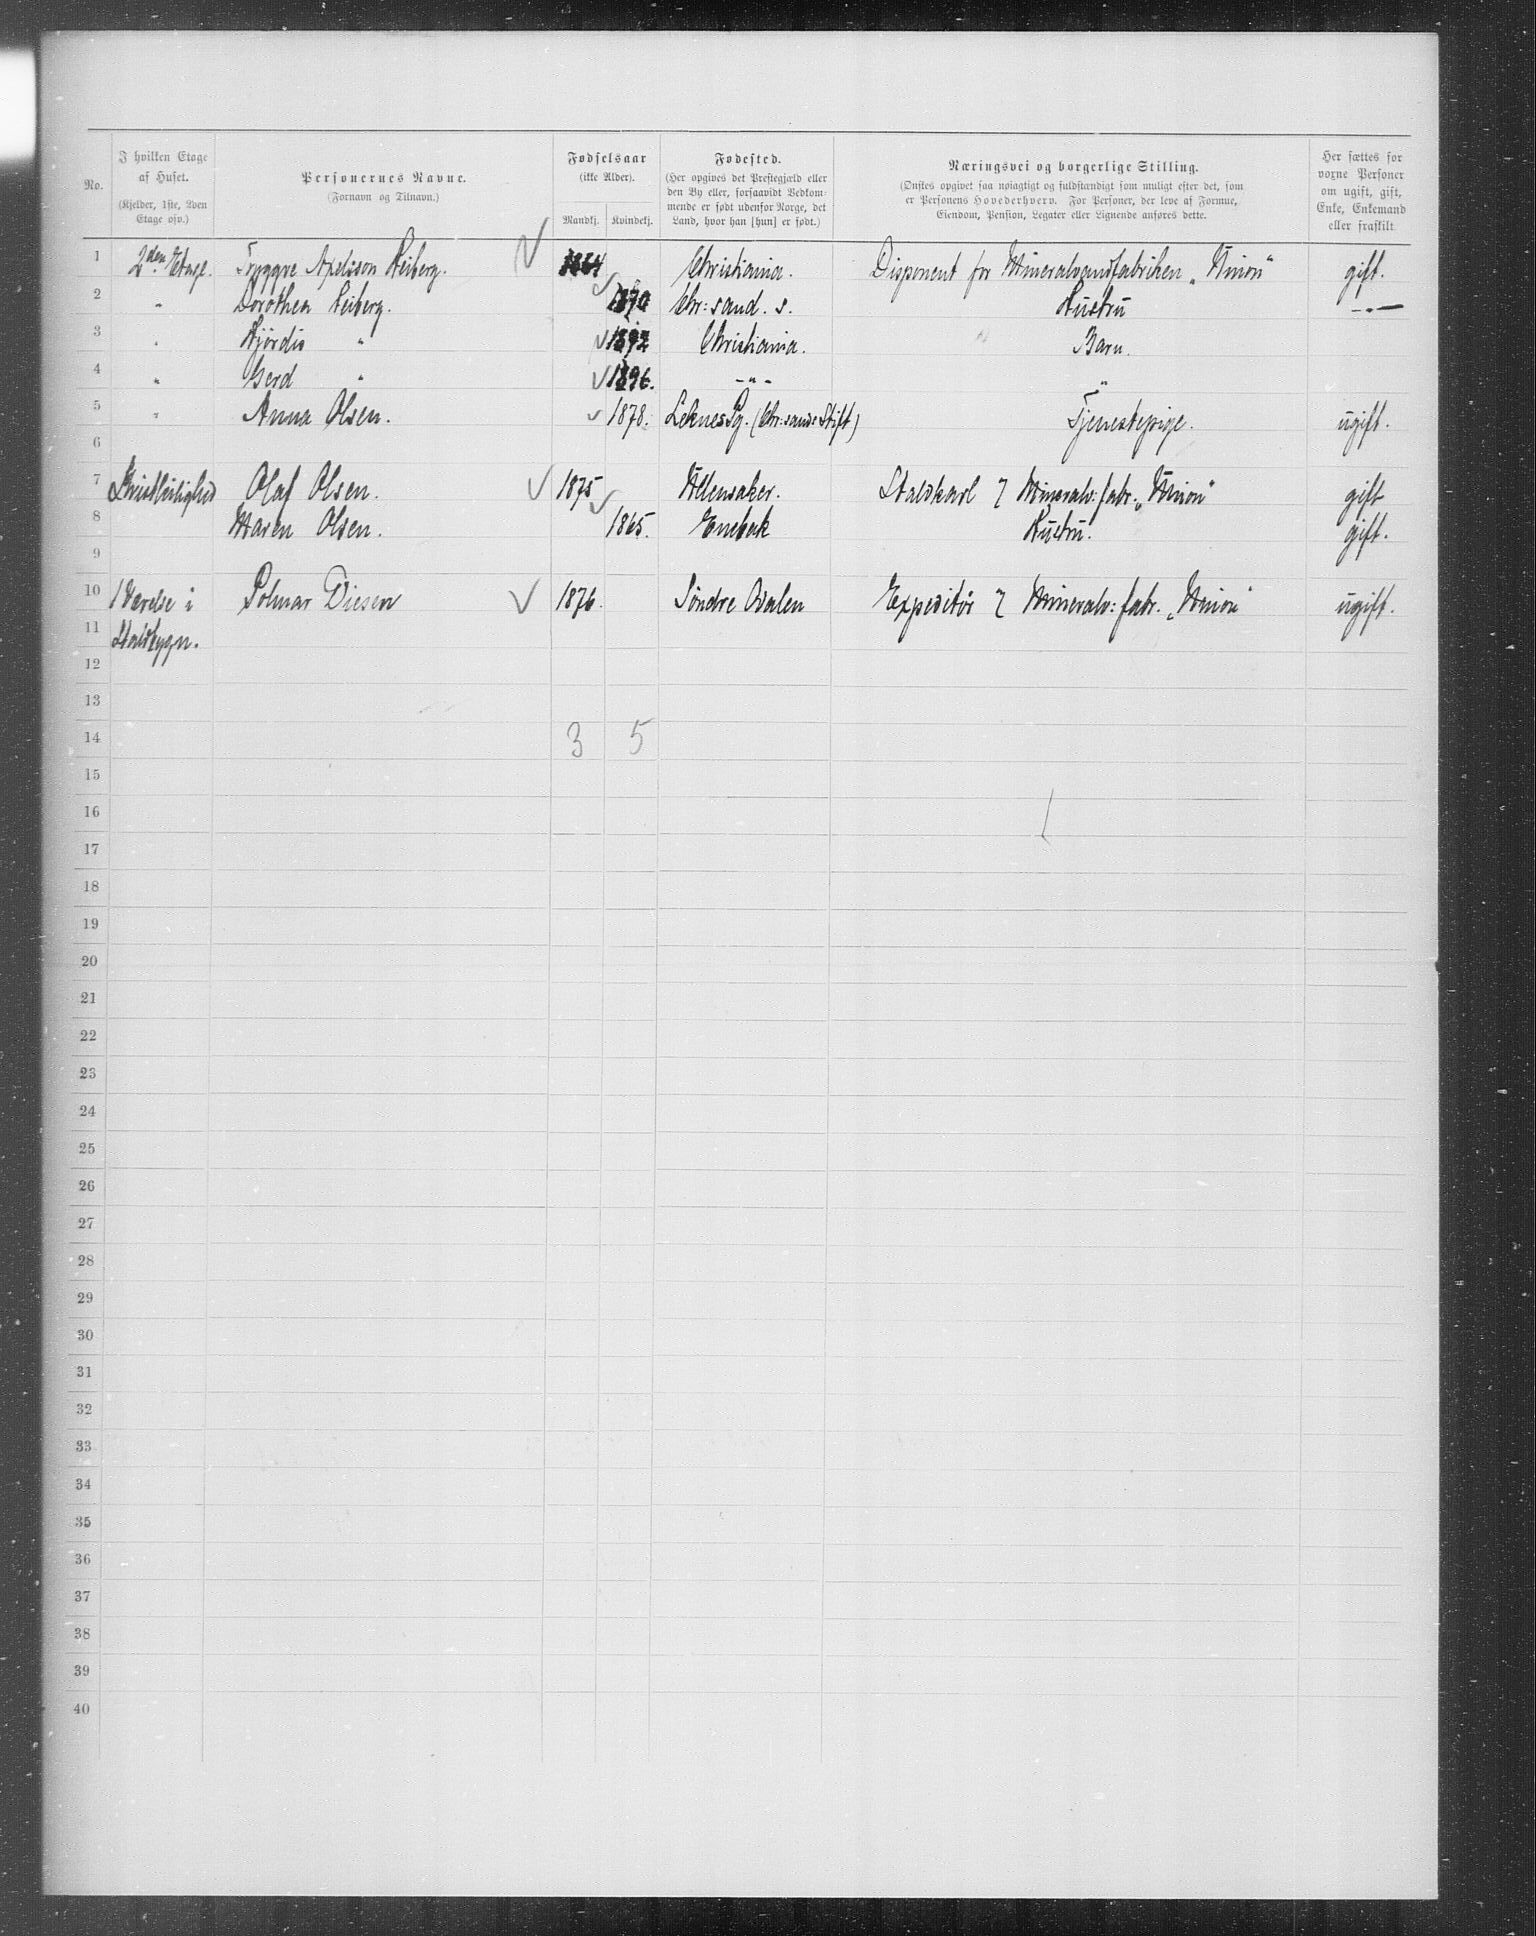 No.
I hvilken Etage af Huset.
(Kjelder, 1ste, 2den Etage osv.)
Personernes Navne.
(Fornavn og Tilnavn.)
Fødselsaar
(ikke Alder).
Mandkj. Kvindekj.
Fødested.
(Her opgives det Prestegjæld eller
den By eller, forsaavidt Vedkom-
mende er født udenfor Norge, det
Land, hvor han [hun] er født.)
Næringsvei og borgerlige Stilling.
(Ønskes opgivet saa nøiagtigt og fuldstændigt som muligt efter det, som
er Personens Hovederhverv. For Personer, der leve af Formue,
Eiendom, Pension, Legater eller Lignende anføres dette.
Her sættes for
voxne Personer
om ugift, gift,
Enke, Enkemand
eller fraskilt
1 2den Etage. Tryggve Axelsson Heiberg. 1864 Christiania. Disponent for Mineralvandfabriken „Union" gift.
2 " Dorothea Heiberg. 1870 Chr:sand. S. Hustru —"—
3 " Hjørdis " 1892 Christiania. Barn.
4 " Gerd " 1896. -"- "
5 " Anna Olsen. 1878. Pg. (Chr:sands Stift) Tjenestepige. ugift.
6
7 Olaf Olsen. 1875 Ullensaker. Staldkarl Mineralv: fabr. „Union" gift
8 Maren Olsen. 1865. Enebak Hustru. gift.
9
10 1 Værelse i Diesen 1876. Søndre Odalen Expeditør Mineralv: fabr. „Union" ugift.
11 Staldbygn.
12
13
14 3 5
15
16
17
18
19
20
21
22
23
24
25
26
27
28
29
30
31
32
33
34
35
36
37
38
39
40